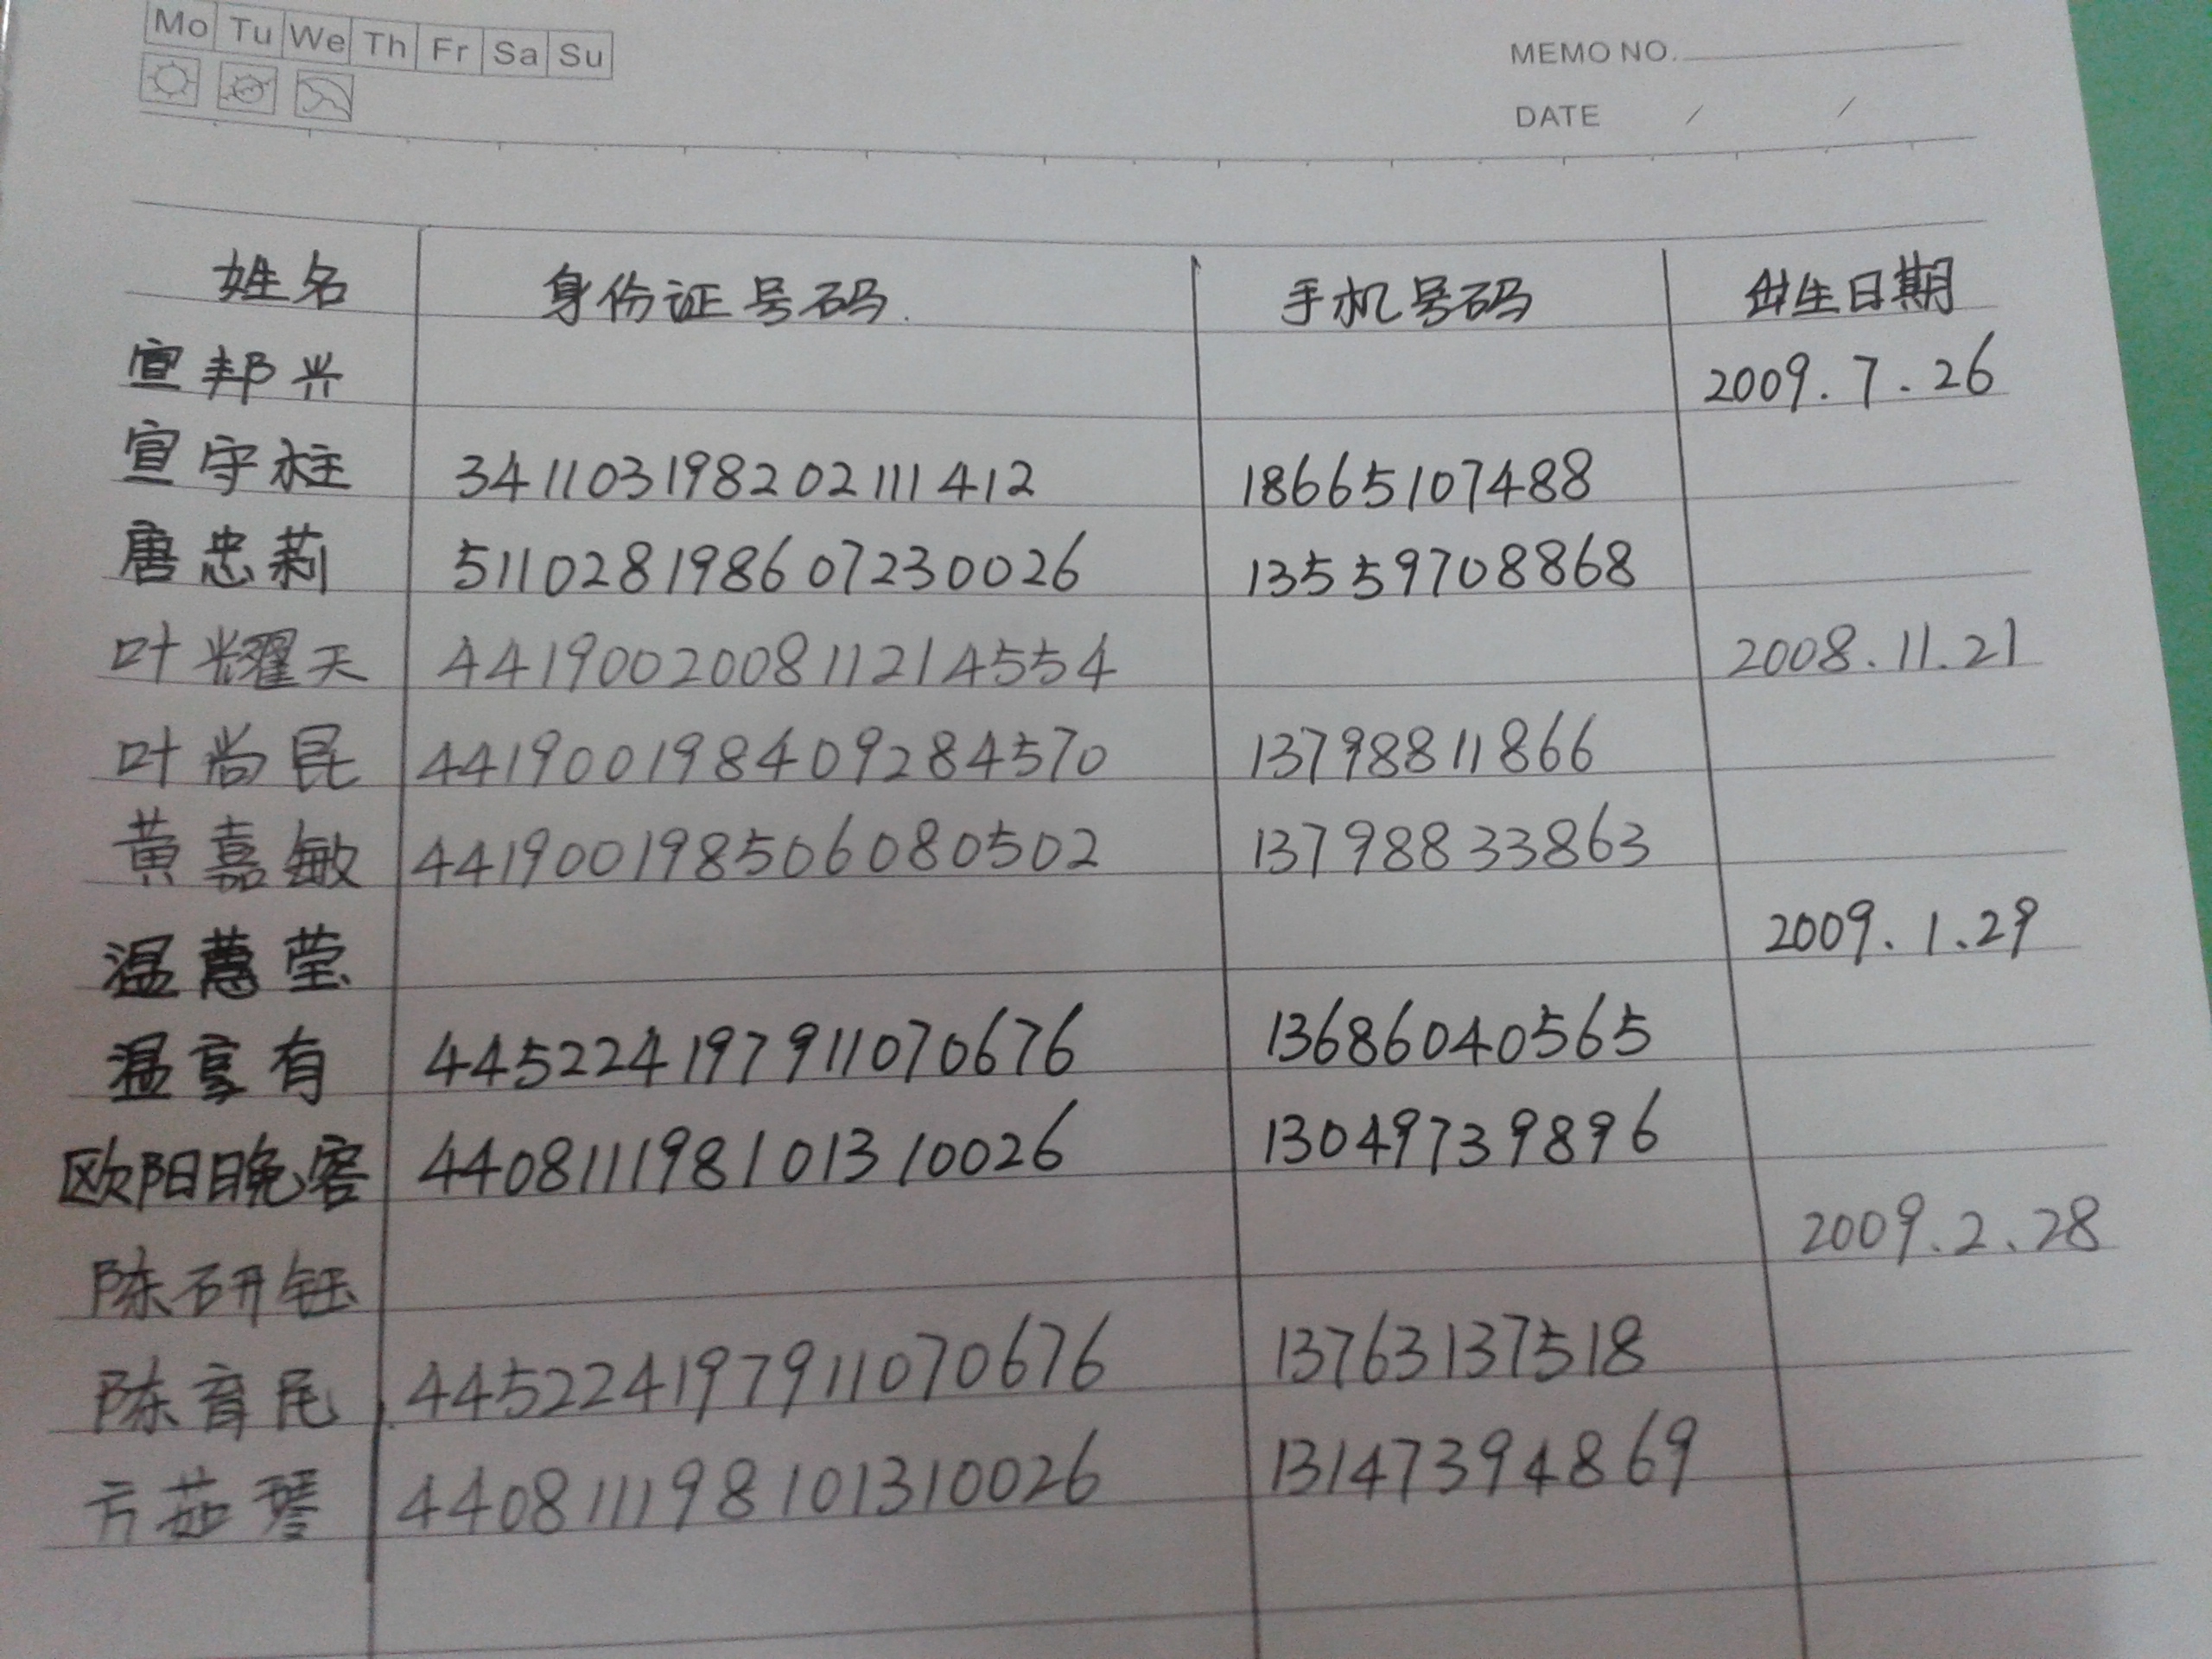 Mo Tu We Th Fr Sa Su
MEMO NO.
DATE / /
姓名 身份证号码. 手机号码 出生日期
宣邦兴 2009.7.26
宣守柱 341103198202111412 18665107488
唐忠莉 511028198607230026 13559708868
叶耀天 441900200811214554 2008.11.21
叶尚昆 441900198409284570 13798811866
黄嘉敏 441900198506080502 13798833863
温蕙莹 2009.1.29
温享有 445224197911070676 13686040565
欧阳晚客 440811198101310026 13049739896
陈研钰 2009.2.28
陈育民 445224197911070676 13763137518
方茹琴 440811198101310026 13147394869